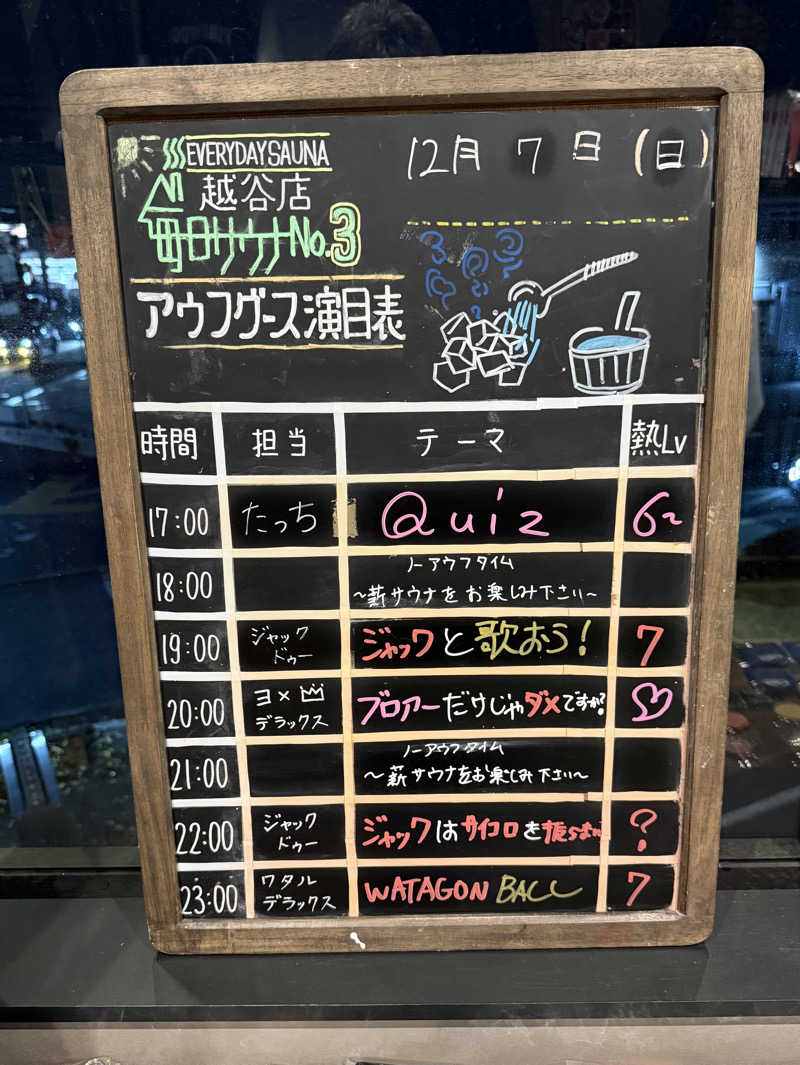 EVERYDAY SAUNA
越谷店
毎日サウナNo.3
アウフグース演目表
12月 7 日 (日)
時間 担当 テーマ 熱Lv
17:00 たっち Quiz 6~
18:00 ノーアウフタイム
~薪サウナをお楽しみ下さい~
19:00 ジャックドゥー ジャックと歌おう! 7
20:00 ヨ×デラックス ブロアーだけじゃダメですか?
21:00 ノーアウフタイム
~薪サウナをお楽しみ下さい~
22:00 ジャックドゥー ジャックはサイコロを振ちまれ ?
23:00 ワタルデラックス WATAGON BALL 7